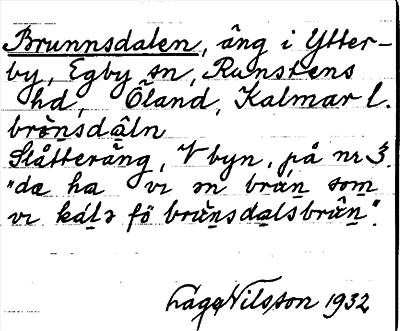 Brunnsdalen, äng i Ytter-
by, Egby sn, Runstens
hd, Öland, Kalmar l.
brònsdâln
Slåtteräng, V byn, på nr 3.
"da ha vi m bràn som
vi kálə fö brànsdalsbrân".
Nilsson 1932